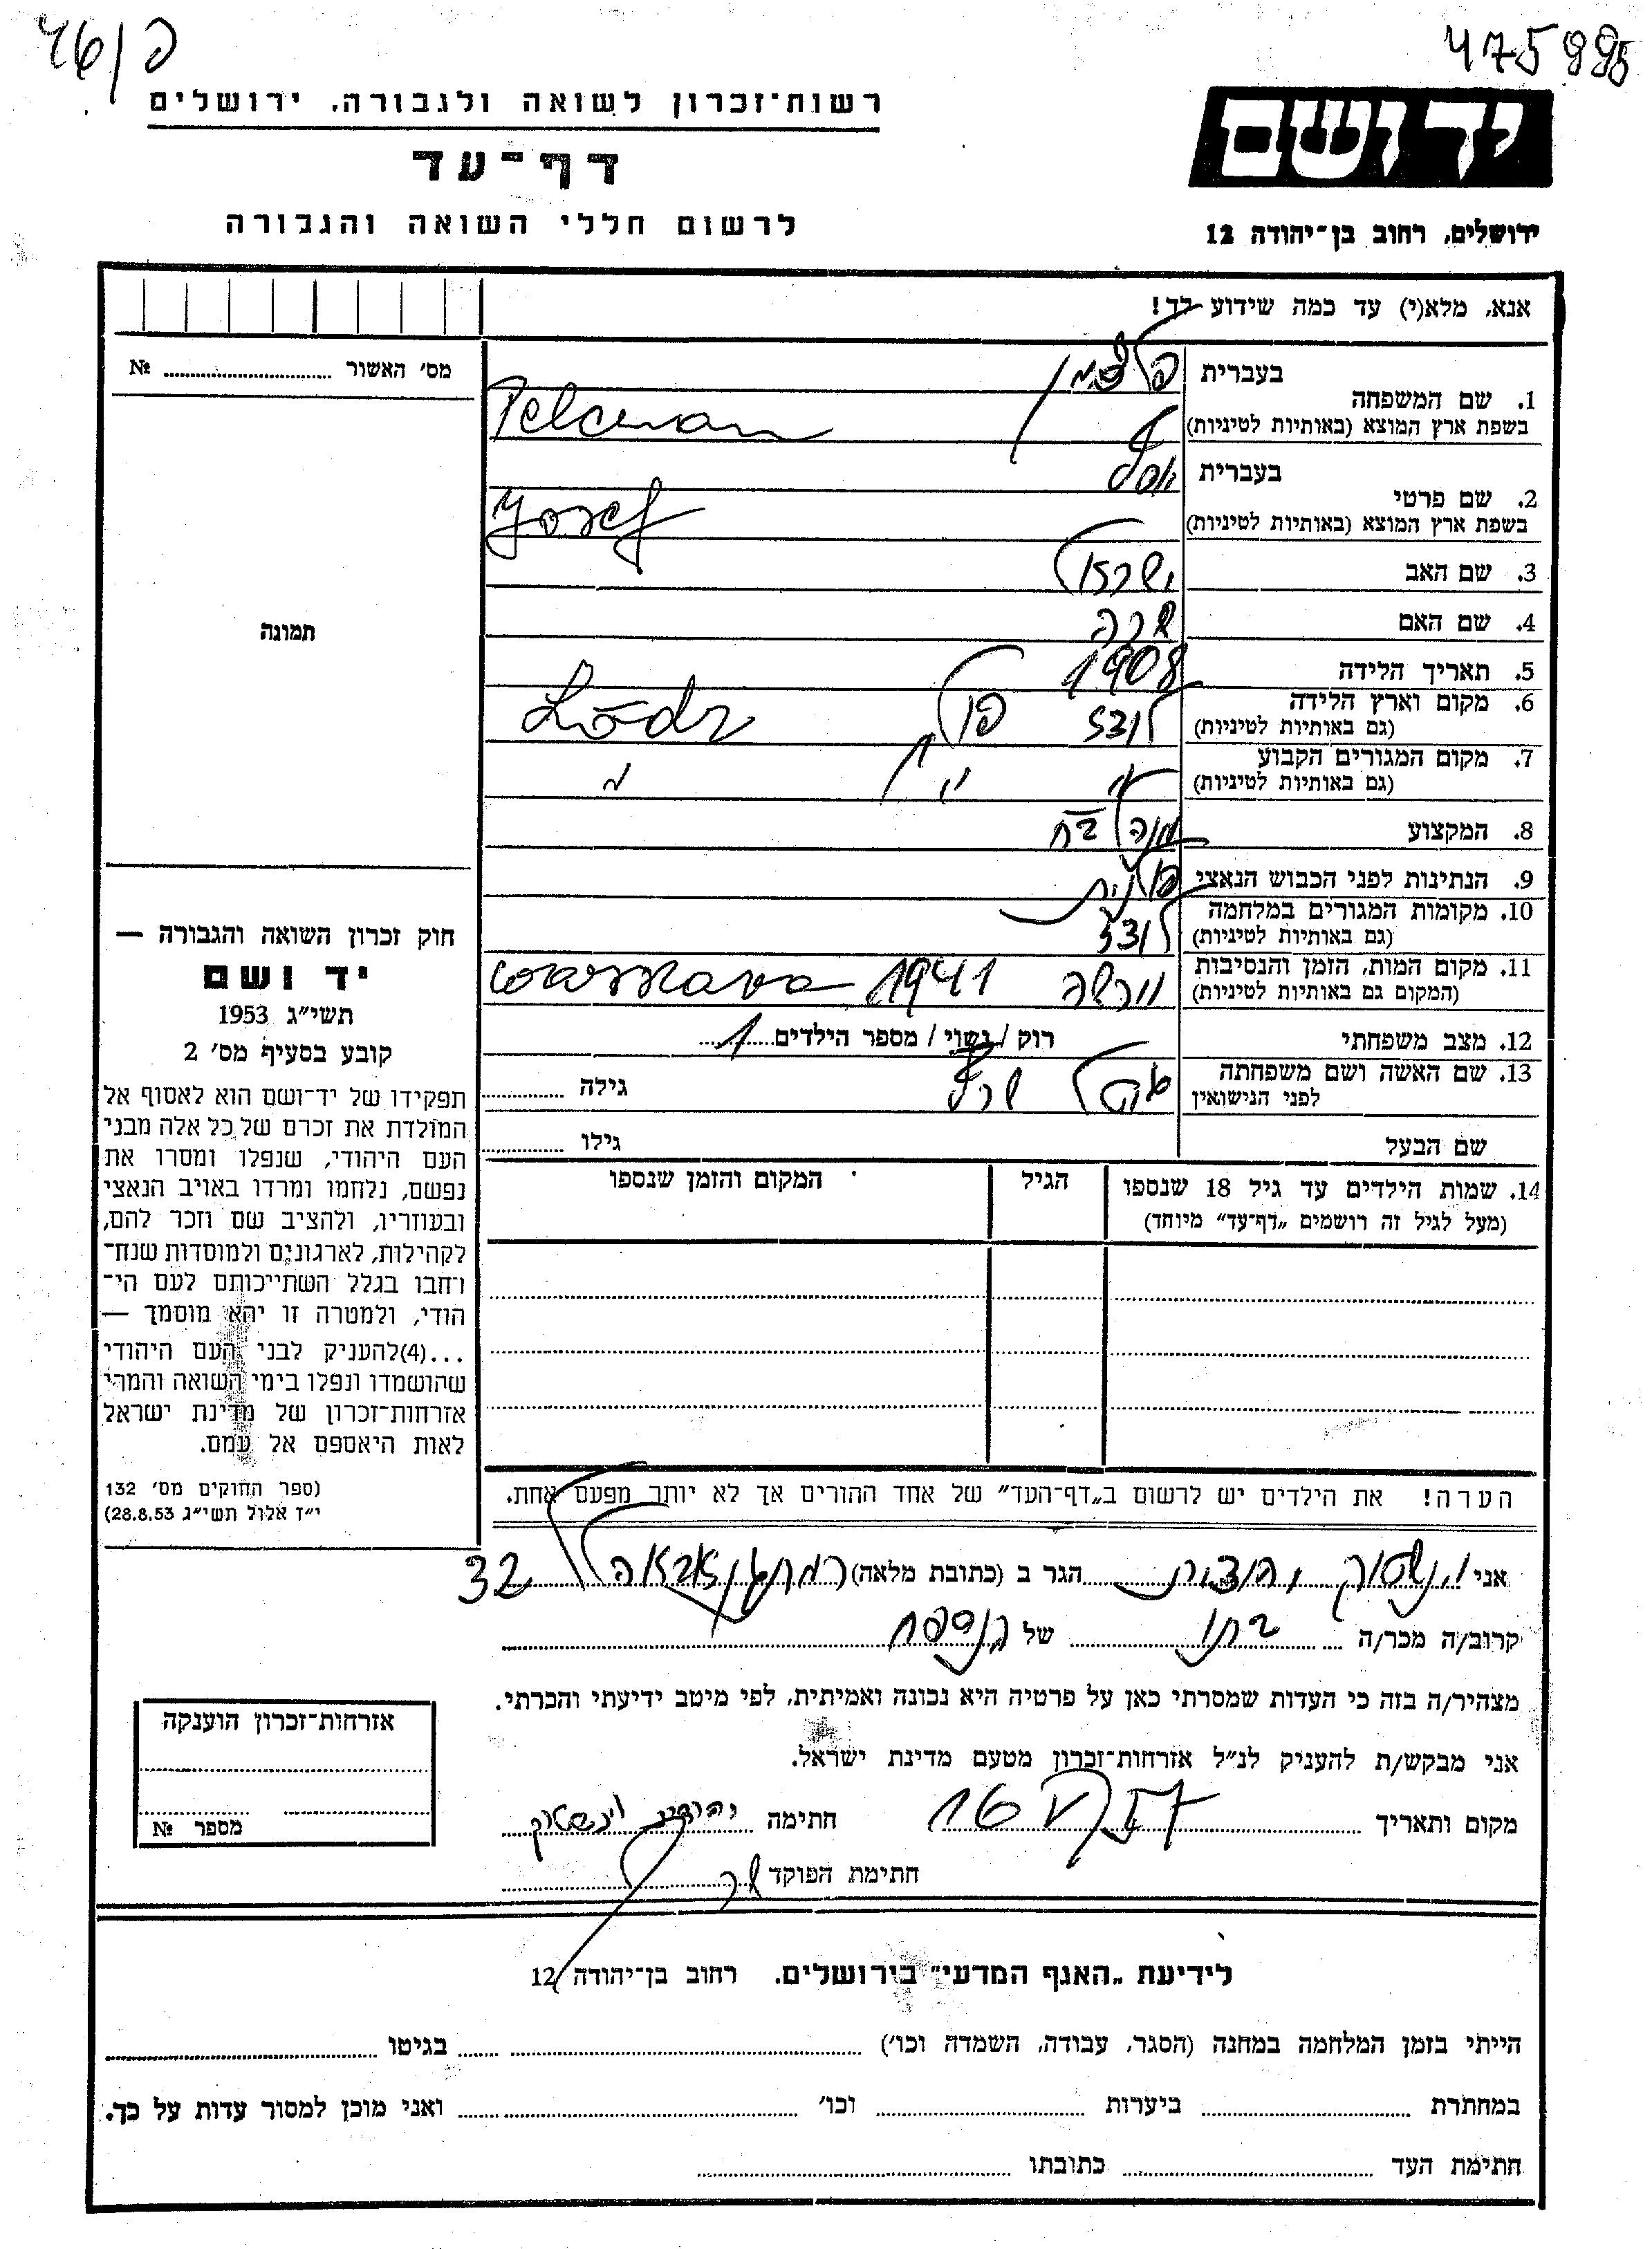 פ/46
475995
רשות־זכרון לשואה ולגבורה. ירושלים
דף־עד
לרשום חללי השואה והגבורה
ידושם
ירושלים, רחוב בן־יהודה 12
אנא, מלא(י) עד כמה שידוע לך!
מס׳ האשור № ........
תמונה
1. שם המשפחה
בעברית
בשפת ארץ המוצא (באותיות לטיניות) Pelcman
2. שם פרטי
בעברית יוסף
בשפת ארץ המוצא (באותיות לטיניות) Josef
3. שם האב ישראל
4. שם האם שרה
5. תאריך הלידה 1908
6. מקום וארץ הלידה לודז פולין Łódz
(גם באותיות לטיניות)
7. מקום המגורים הקבוע
(גם באותיות לטיניות)
8. המקצוע
9. הנתינות לפני הכבוש הנאצי פולנית
10. מקומות המגורים במלחמה לודז
(גם באותיות לטיניות)
11. מקום המות, הזמן והנסיבות ורשה 1941 Warszawa
(המקום גם באותיות לטיניות)
12. מצב משפחתי רוק / נשוי / מספר הילדים 1
13. שם האשה ושם משפחתה גילה ........
לפני הנישואין
שם הבעל גילו ........
14. שמות הילדים עד גיל 18 שנספו הגיל המקום והזמן שנספו
(מעל לגיל זה רושמים „דף־עד״ מיוחד)
הערה! את הילדים יש לרשום ב„דף־העד״ של אחד ההורים אך לא יותר מפעם אחת.
חוק זכרון השואה והגבורה —
יד ושם
תשי״ג 1953
קובע בסעיף מס׳ 2
תפקידו של יד־ושם הוא לאסוף אל
המולדת את זכרם של כל אלה מבני
העם היהודי, שנפלו ומסרו את
נפשם, נלחמו ומרדו באויב הנאצי
ובעוזריו, ולהציב שם וזכר להם,
לקהילות, לארגונים ולמוסדות שנח־
רחבו בגלל השתייכותם לעם הי־
הודי, ולמטרה זו יהא מוסמך —
...(4)להעניק לבני העם היהודי
שהושמדו ונפלו בימי השואה והמרי
אזרחות־זכרון של מדינת ישראל
לאות היאספם אל עמם.
(ספר החוקים מס׳ 132
י״ז אלול תשי״ג 28.8.53)
אני וינשטוק יהודית הגר ב (כתובת מלאה) 32
קרוב/ה מכר/ה בתו של הנספה
מצהיר/ה בזה כי העדות שמסרתי כאן על פרטיה היא נכונה ואמיתית, לפי מיטב ידיעתי והכרתי.
אני מבקש/ת להעניק לנ״ל אזרחות־זכרון מטעם מדינת ישראל.
מקום ותאריך 16 V 57 חתימה יהודית וינשטוק
חתימת הפוקד
אזרחות־זכרון הוענקה
מספר №
לידיעת „האגף המדעי״ בירושלים. רחוב בן־יהודה 12
הייתי בזמן המלחמה במחנה (הסגר, עבודה, השמדה וכו׳) ........ בגיטו ........
במחתרת ........ ביערות ........ וכו׳ ........ ואני מוכן למסור עדות על כך.
חתימת העד ........ כתובתו ........